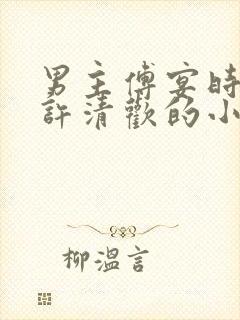 男主傅宴時
許清歡的小
柳溫言